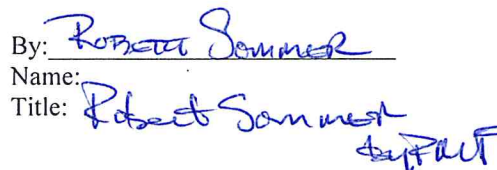 By: ROBERT SOMMER
Name:
Title: Robert Sommer